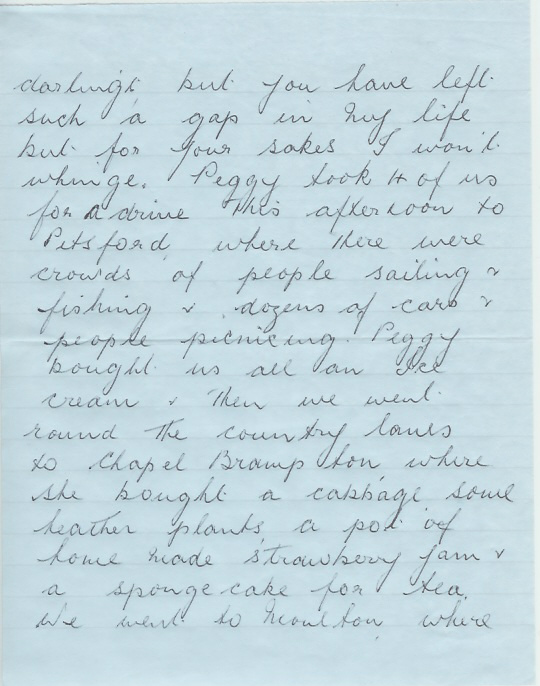 darlings but you have left
such a gap in my life
but for your sakes I won't
whinge. Peggy took 4 of us
for a drive this afternoon to
Pitsford, where there were
crowds of people sailing &
fishing & dozens of cars &
people picnicing. Peggy
bought us all an Ice
cream & then we went
round the country lanes
to Chapel Brampton where
she bought a cabbage some
heather plants, a pot of
home made strawberry jam &
a sponge cake for tea.
We went to Moulton where